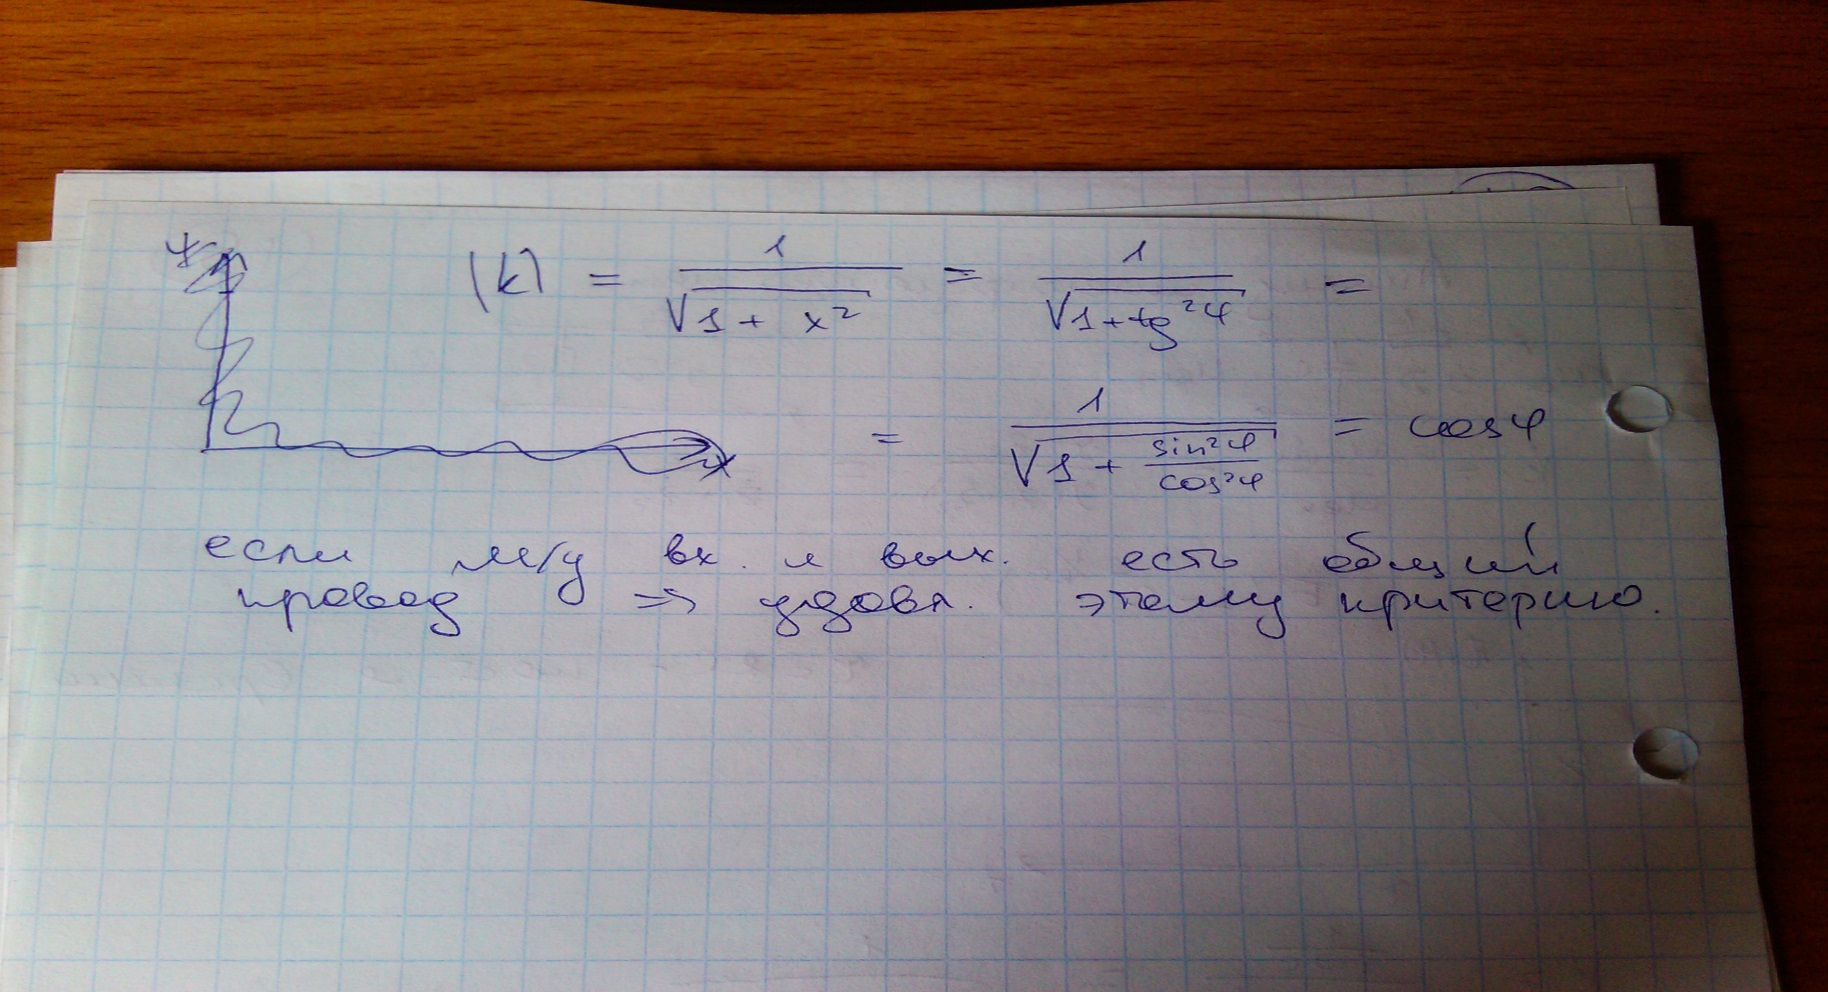 |k| = 1/√(1 + x²) = 1/√(1 + tg²φ) =
= 1/√(1 + sin²φ/cos²φ) = cosφ
x
если м/у вх. и вых. есть общий
провод => удовл. этому критерию.